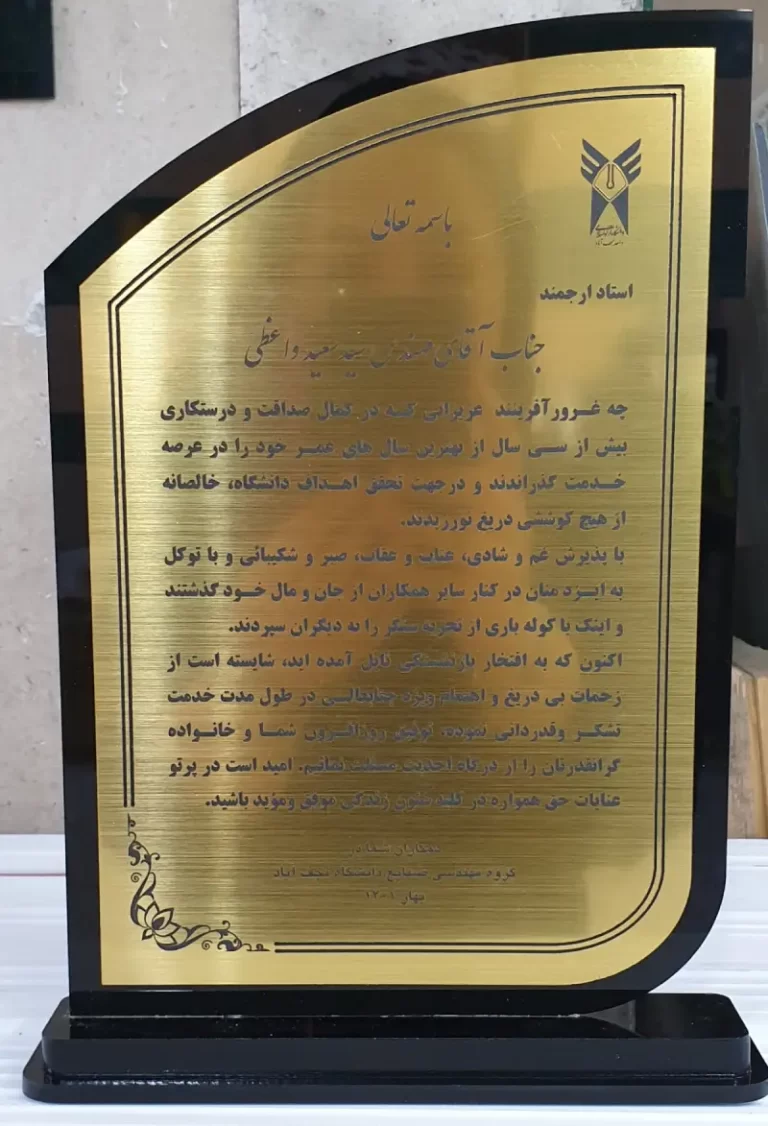 دانشگاه آزاد اسلامی
واحد نجف آباد
باسمه تعالی
استاد ارجمند
جناب آقای مهندس سید سعید واعظی
چه غرورآفرینند عزیزانی که در کمال صداقت و درستکاری
بیش از سی سال از بهترین سال های عمر خود را در عرصه
خدمت گذراندند و درجهت تحقق اهداف دانشگاه، خالصانه
از هیچ کوششی دریغ نورزیدند.
با پذیرش غم و شادی، عتاب و عقاب، صبر و شکیبائی و با توکل
به ایزد منان در کنار سایر همکاران از جان و مال خود گذشتند
و اینک با کوله باری از تجربه سنگر را به دیگران سپردند.
اکنون که به افتخار بازنشستگی نایل آمده اید، شایسته است از
زحمات بی دریغ و اهتمام ویژه جنابعالی در طول مدت خدمت
تشکر وقدردانی نموده، توفیق روزافزون شما و خانواده
گرانقدرتان را از درگاه احدیت مسئلت نمائیم. امید است در پرتو
عنایات حق همواره در زندگی موفق ومؤید باشید.
همکاران شما در
گروه مهندسی صنایع دانشگاه نجف آباد
بهار ۱۴۰۱